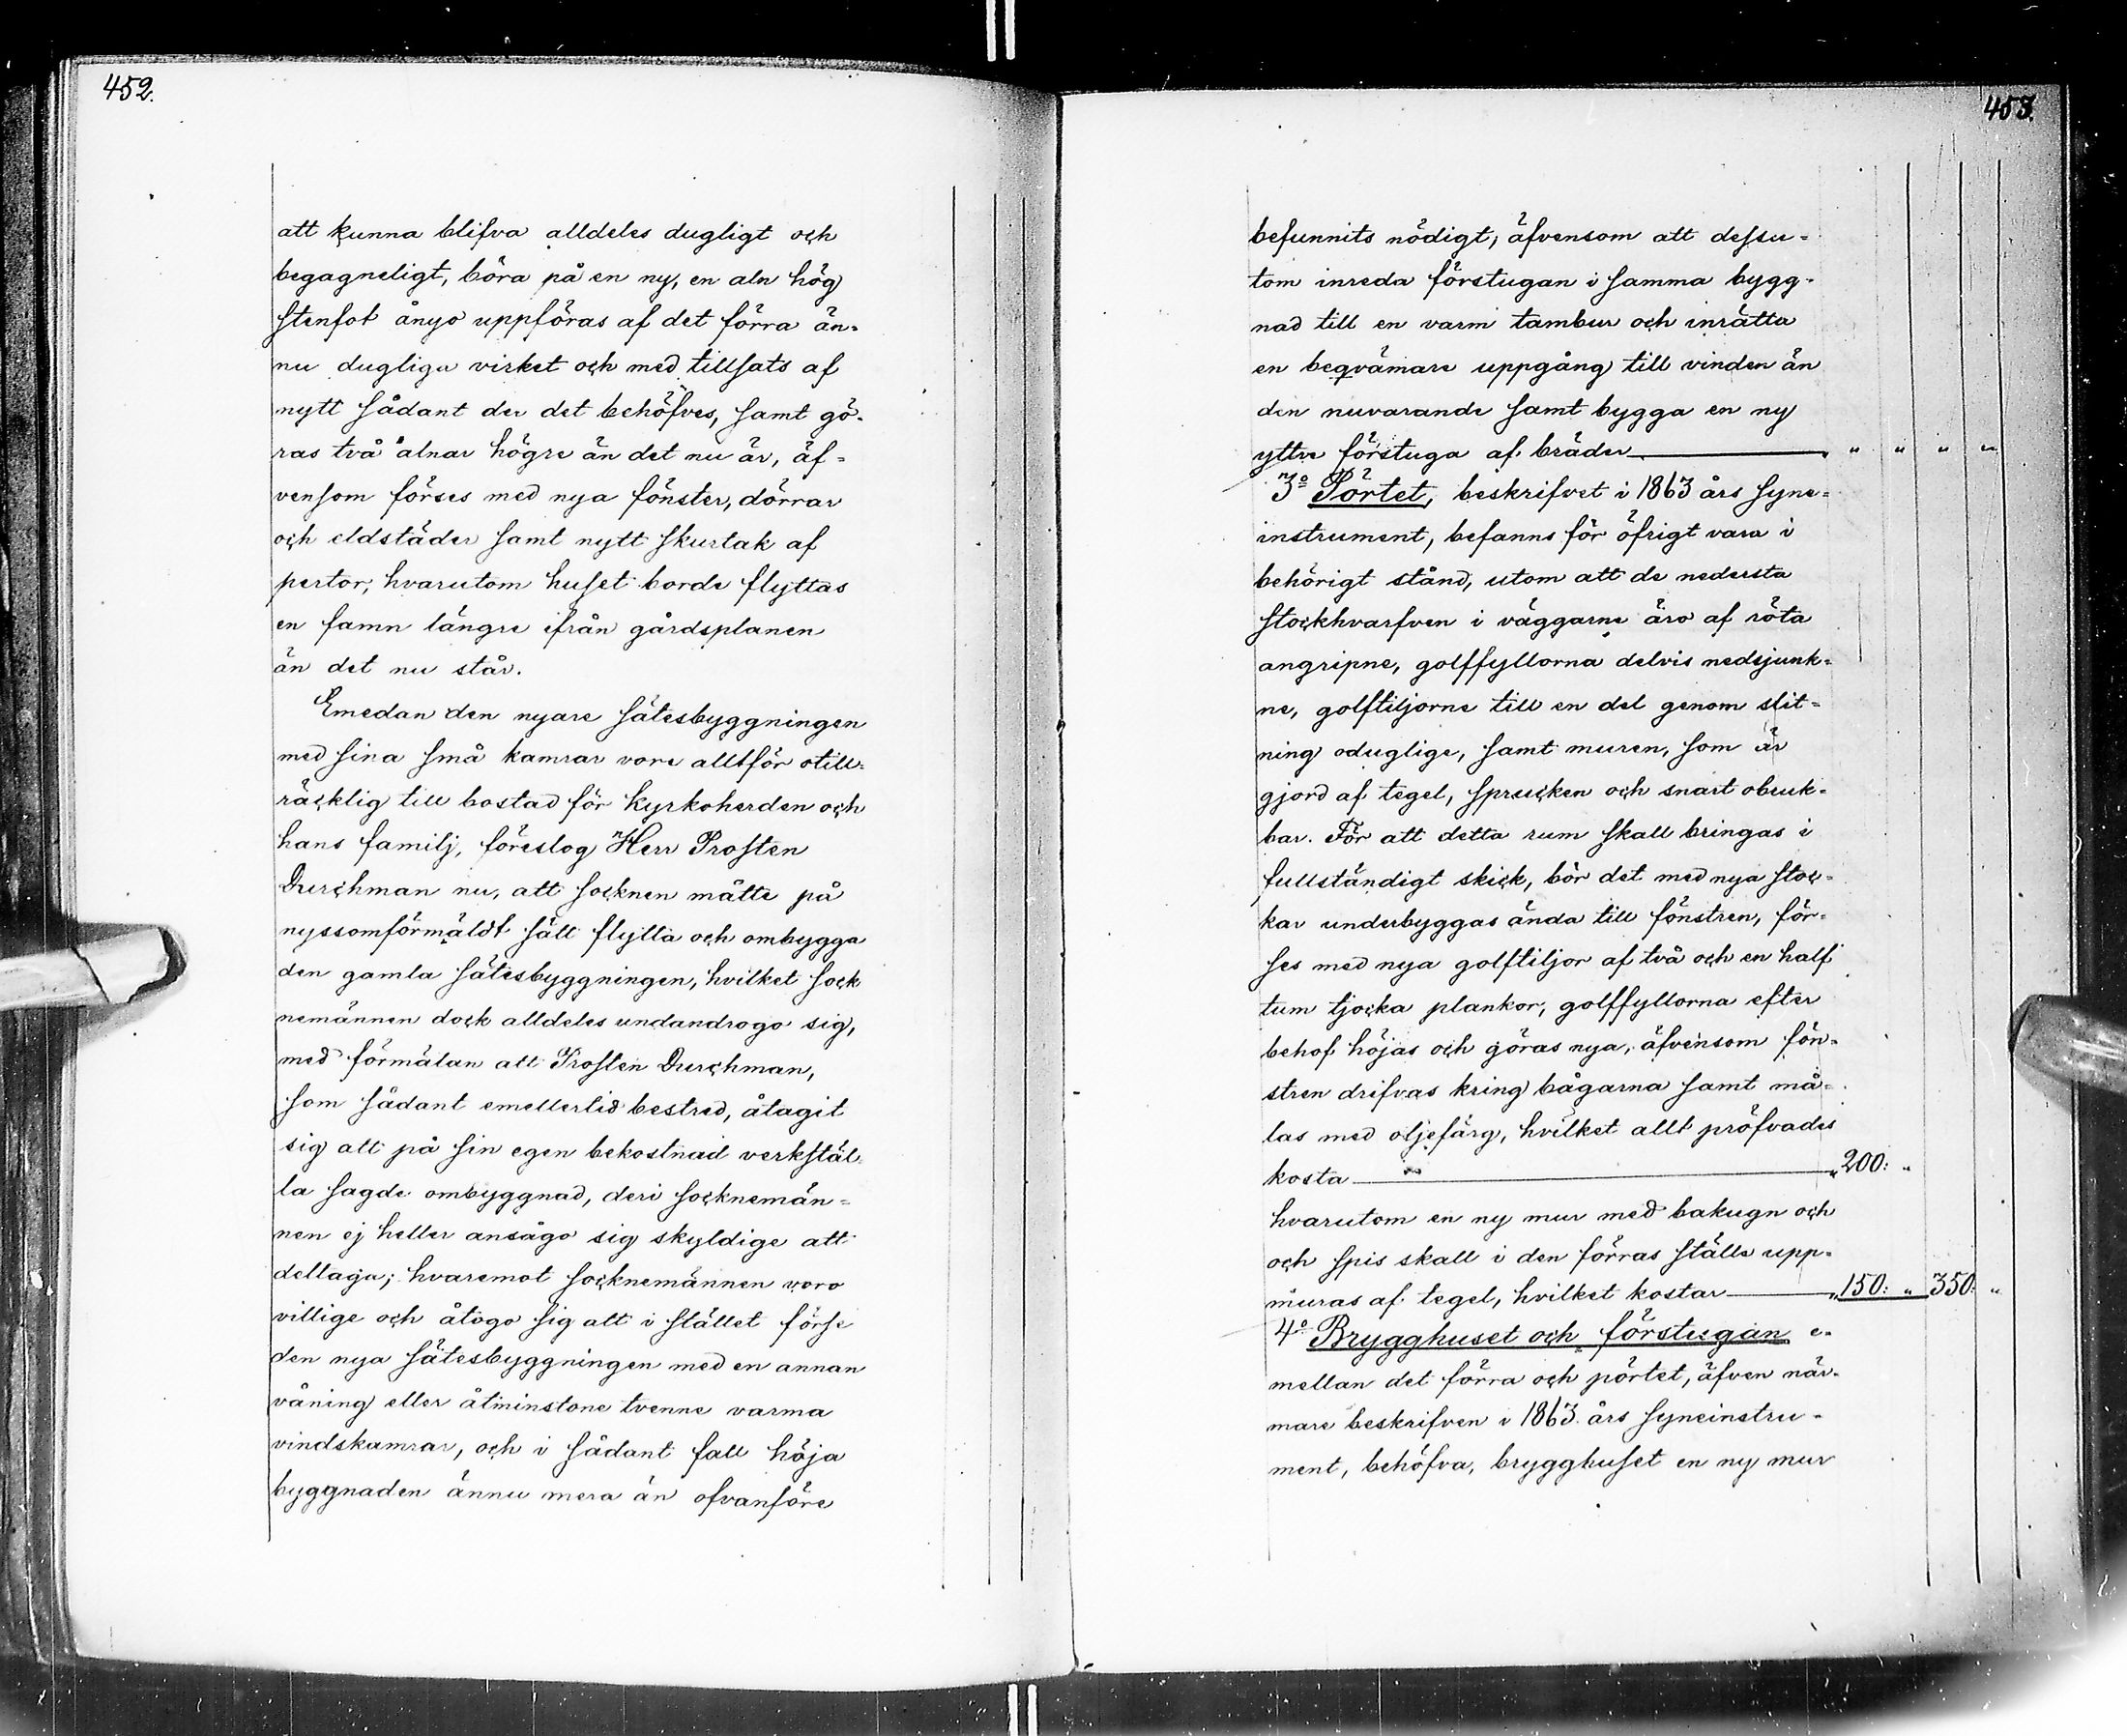 452.
att kunna blifva alldeles dugligt och
begagneligt, böra på en ny, en aln hög
stenfot ånyo uppföras af det förra än-
nu dugliga virket och med tillsats af
nytt sådant der det behöfves, samt gö-
ras två alnar högre än det nu är, äf-
vensom förses med nya fönster, dörrar
och eldstäder samt nytt skurtak af
pertor; hvarutom huset borde flyttas
en famn längre ifrån gårdsplanen
än det nu står.
Emedan den nyare sätesbyggningen
med sina små kamrar vore alltför otill-
räcklig till bostad för kyrkoherden och
hans familj, föreslog Herr Prosten
Durchman nu, att socknen måtte på
nyssomförmäldt sätt flytta och ombygga
den gamla sätesbyggningen, hvilket sock
nemännen dock alldeles undandrogo sig,
med förmälan att Prosten Durchman,
som sådant emellertid bestred, åtagit
sig att på sin egen bekostnad verkstäl-
la sagde ombyggnad, deri socknemän-
nen ej heller ansågo sig skyldige att
deltaga; hvaremot socknemännen voro
villige och åtogo sig att i stället förse
den nya sätesbyggningen med en annan
våning eller åtminstone tvenne varma
vindskamrar, och i sådant fall höja
byggnaden ännu mera än ofvanföre
453.
befunnits nödigt; äfvensom att dessu-
tom inreda förstugan i samma bygg-
nad till en varm tambur och inrätta
en beqvämare uppgång till vinden än
den nuvarande samt bygga en ny
yttre förstuga af bräder " " " "
3º Pörtet, beskrifvet i 1863 års syne-
instrument, befanns för öfrigt vara i
behörigt stånd, utom att de nedersta
stockhvarfven i väggarne äro af röta
angripne, golffyllorna delvis nedsjunk-
ne, golftiljorne till en del genom slit-
ning oduglige, samt muren, som är
gjord af tegel, sprucken och snart obruk-
bar. För att detta rum skall bringas i
fullständigt skick, bör det med nya stoc-
kar underbyggas ända till fönstren, för-
ses med nya golftiljor af två och en half
tum tjocka plankor, golffyllorna efter
behof höjas och göras nya, äfvensom fön-
stren drifvas kring bågarna samt må-
las med oljefärg, hvilket allt pröfvades
kosta " 200: "
hvarutom en ny mur med bakugn och
och spis skall i den förras ställe upp-
muras af tegel, hvilket kostar " 150: " 350: "
4º Brygghuset och förstugan e-
mellan det förra och pörtet, äfven när-
mare beskrifven i 1863 års syneinstru-
ment, behöfva, brygghuset en ny mur